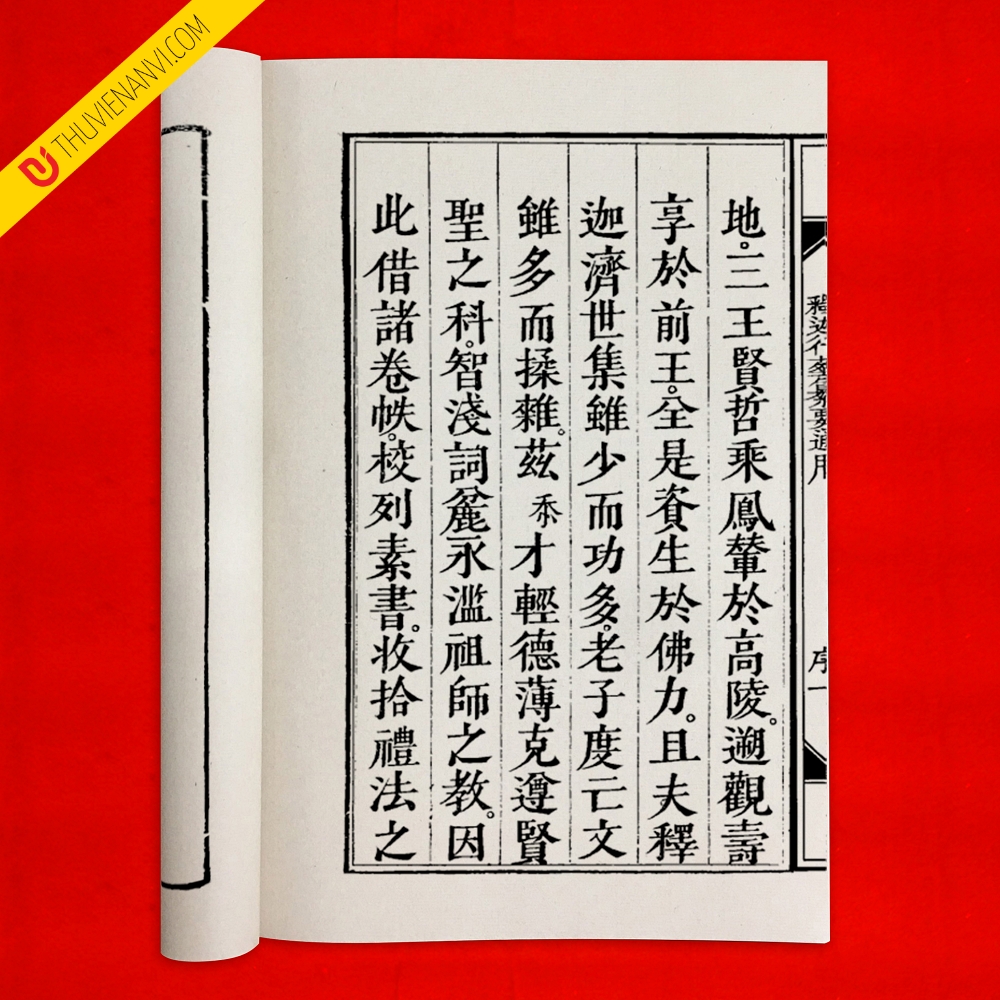 THUVIENANVI.COM
序一
地。三王賢哲乘鳳輦於高陵。遡觀壽
享於前王。全是資生於佛力。且夫釋
迦濟世集雖少而功多。老子度亡文
雖多而揉雜。茲忝才輕德薄克遵賢
聖之科。智淺詞麄永濫祖師之教。因
此借諸卷帙。校列素書。收拾禮法之